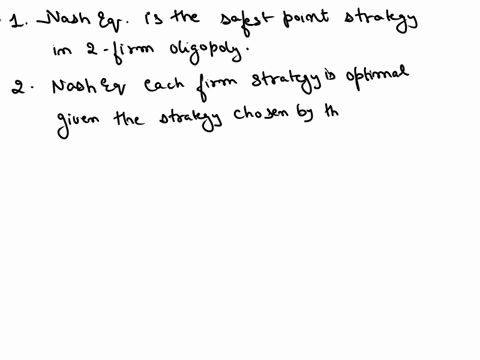 1. Nash Eq. is the safest point strategy
in 2-firm oligopoly.
2. Nash Eq each firm strategy is optimal
given the strategy chosen by th